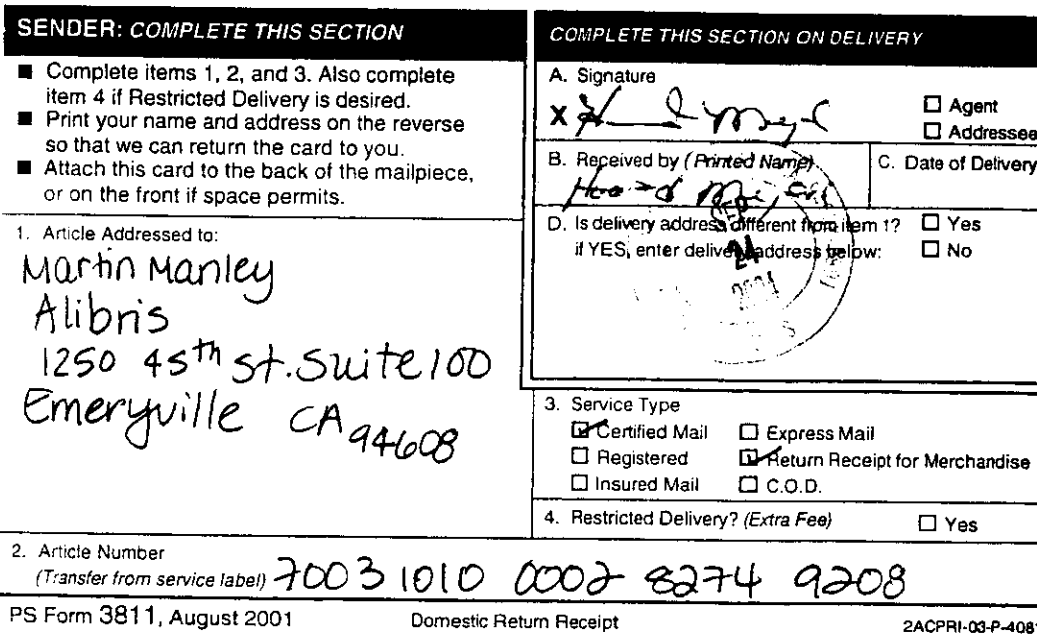 SENDER: COMPLETE THIS SECTION
■ Complete items 1, 2, and 3. Also complete
item 4 if Restricted Delivery is desired.
■ Print your name and address on the reverse
so that we can return the card to you.
■ Attach this card to the back of the mailpiece,
or on the front if space permits.
1. Article Addressed to:
Martin Manley
Alibris
1250 45th St. Suite 100
Emeryville CA 94608
COMPLETE THIS SECTION ON DELIVERY
A. Signature
X
☐ Agent
☐ Addressee
B. Received by (Printed Name)
C. Date of Delivery
D. Is delivery address different from item 1? ☐ Yes
if YES, enter delivery address below: ☐ No
SEP
24
2004
3. Service Type
☑ Certified Mail ☐ Express Mail
☐ Registered ☑ Return Receipt for Merchandise
☐ Insured Mail ☐ C.O.D.
4. Restricted Delivery? (Extra Fee) ☐ Yes
2. Article Number
(Transfer from service label) 7003 1010 0002 8274 9208
PS Form 3811, August 2001 Domestic Return Receipt 2ACPRI-03-P-4081